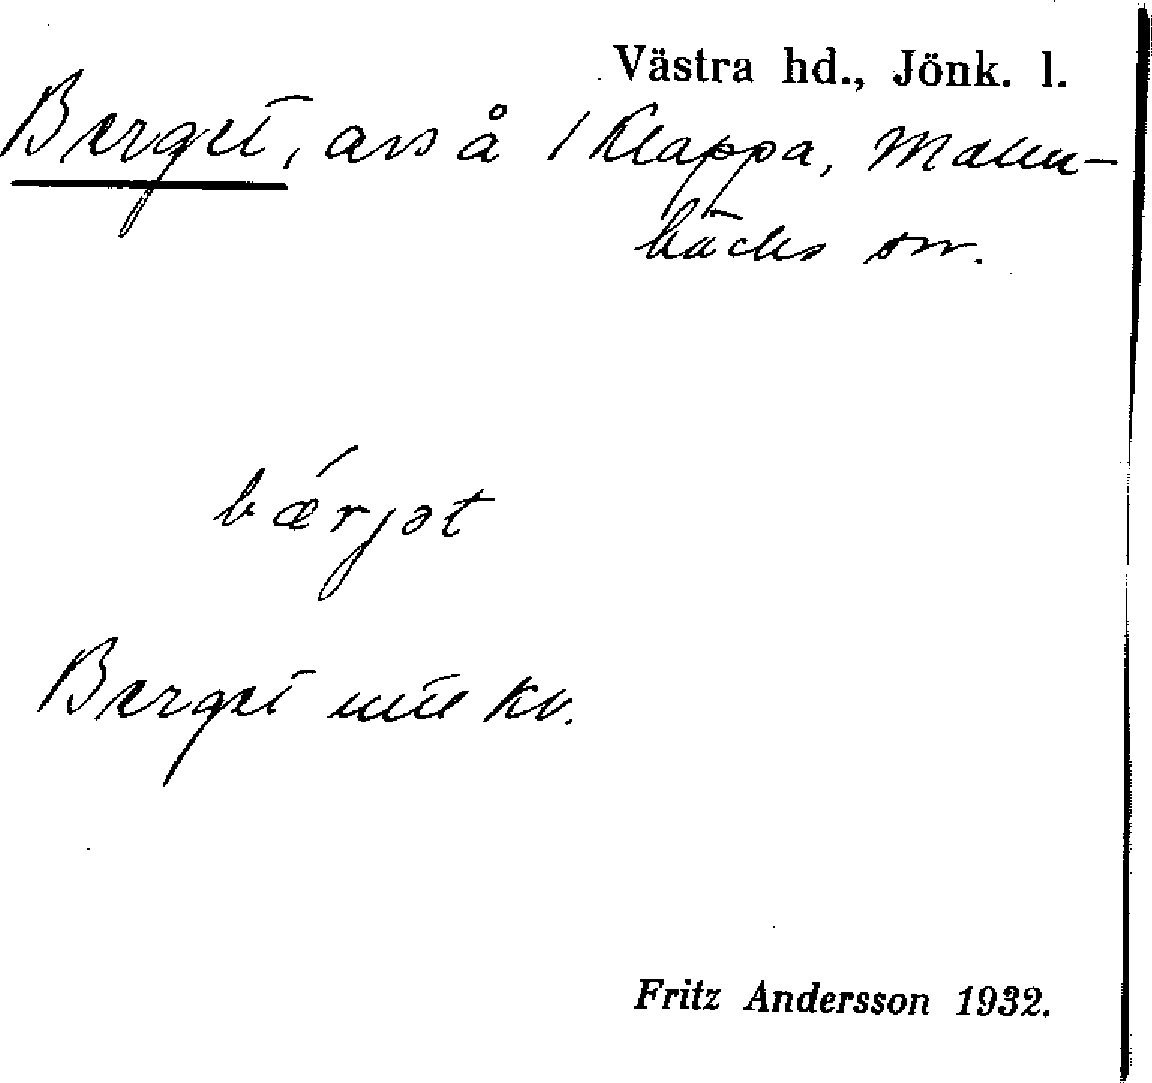 Västra hd., Jönk. l.
Berget, avs å 1 Klappa, Malm-
bäcks sn.
bǽrjət
Berget utt kv.
Fritz Andersson 1932.